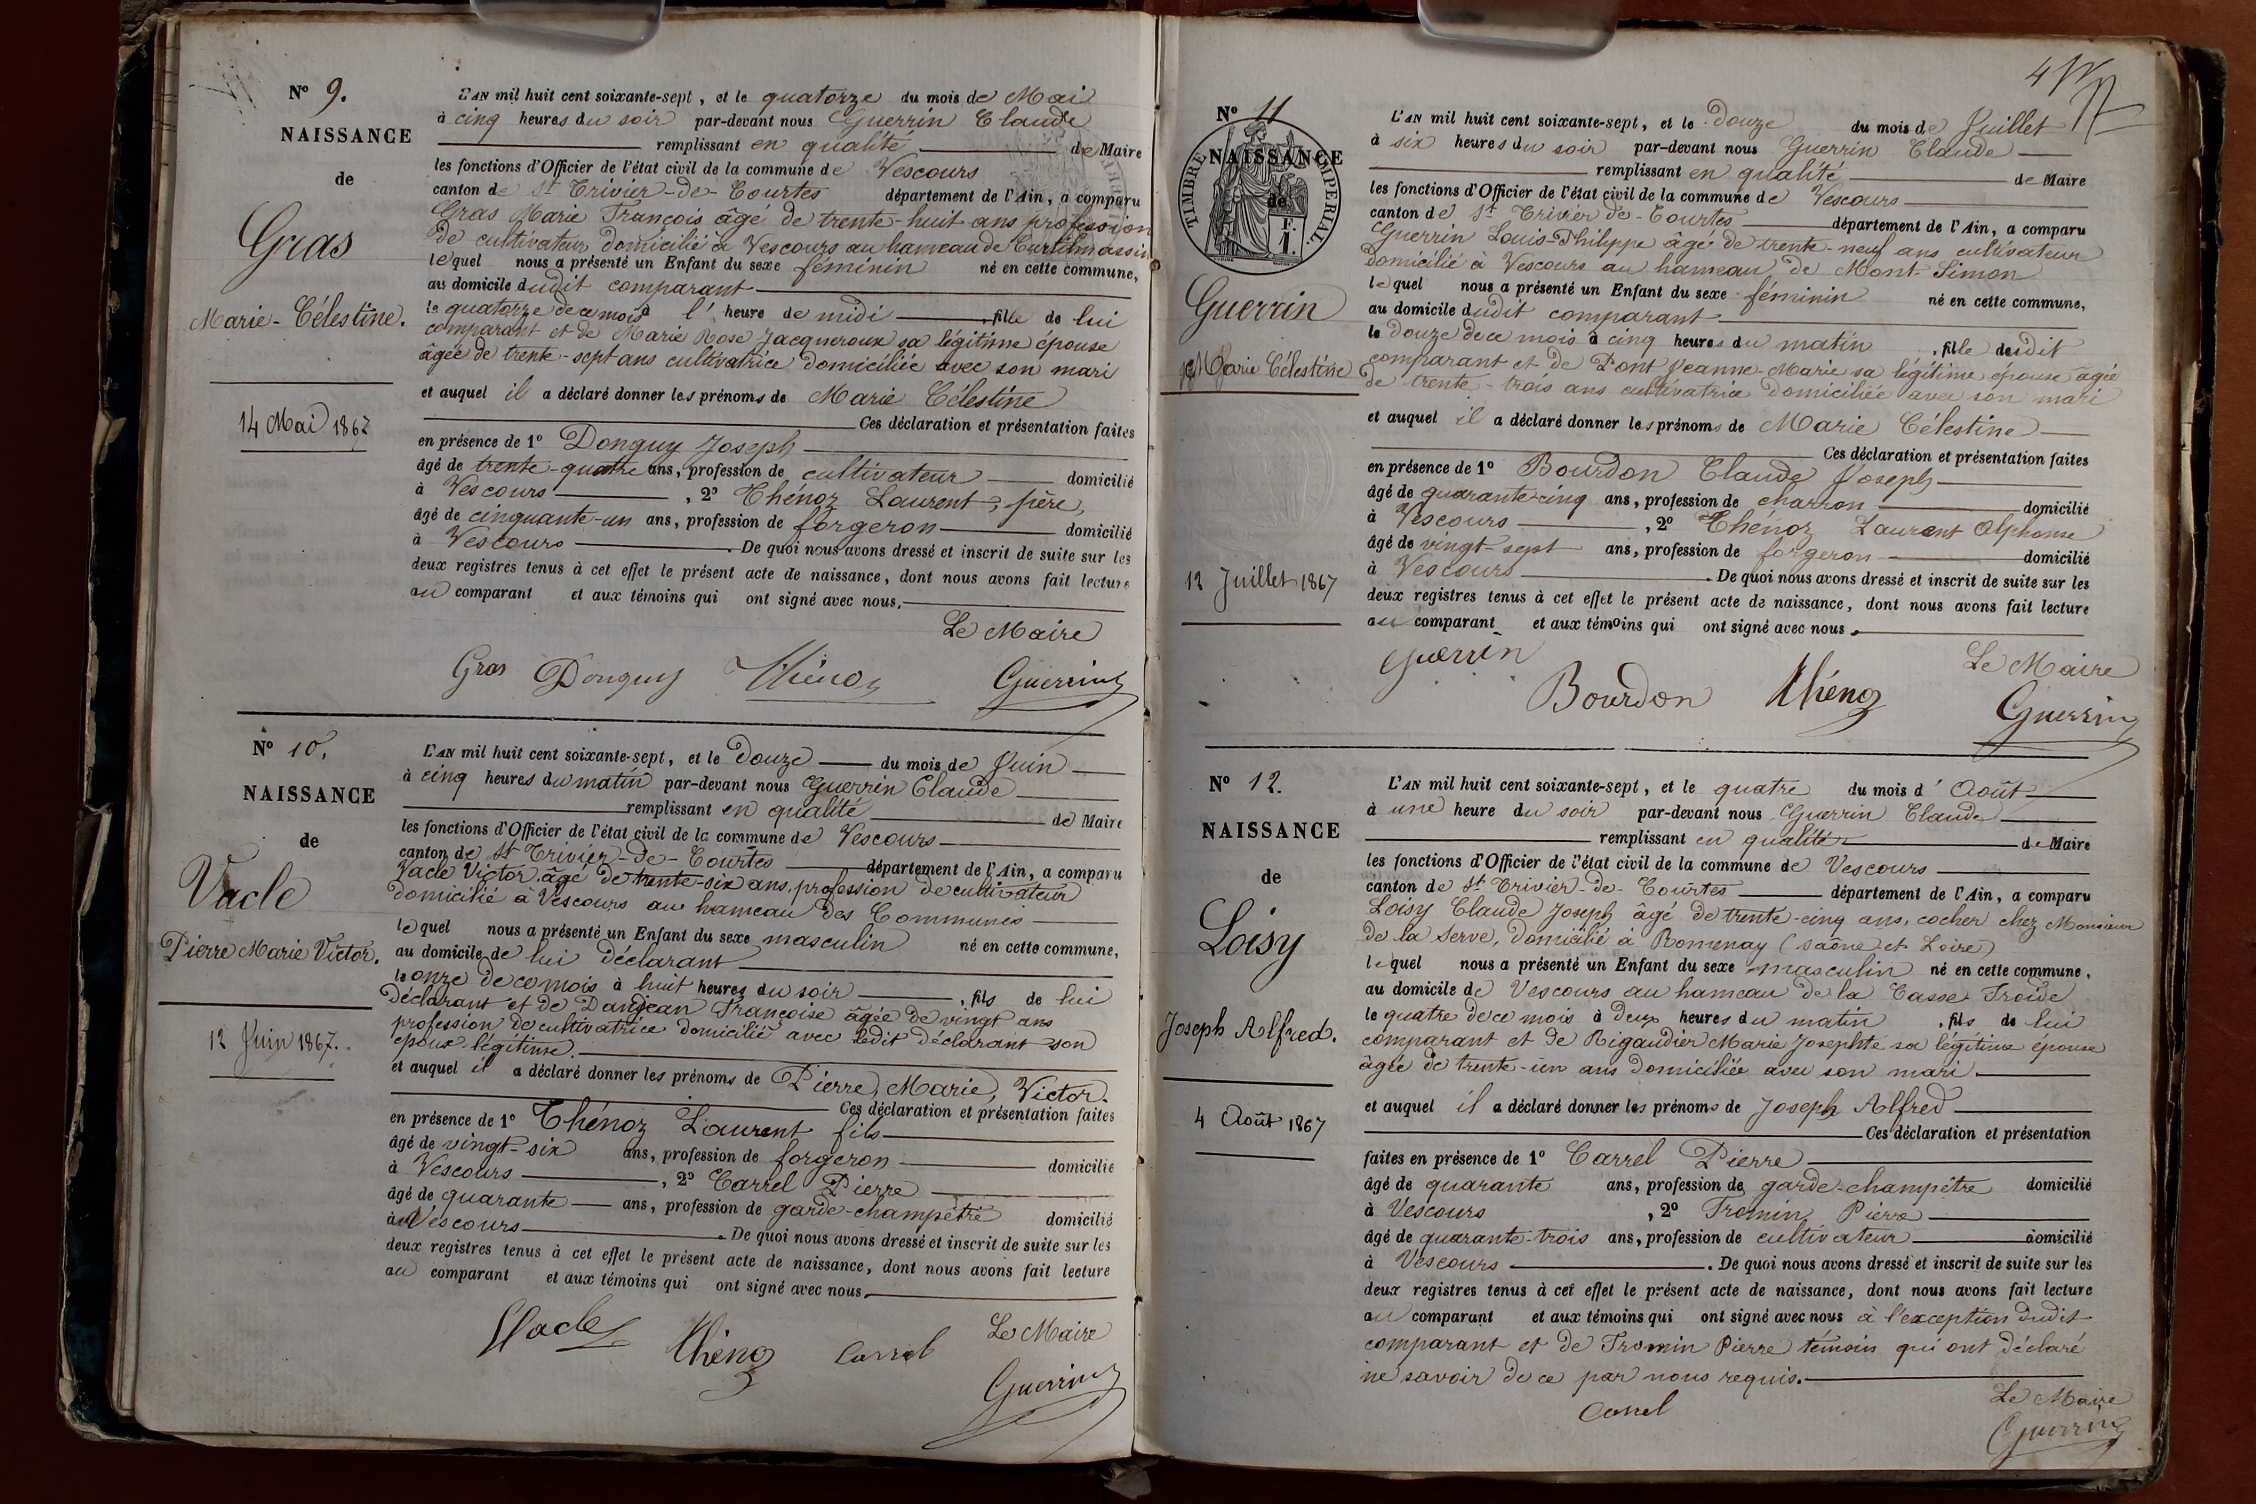 Nº 9.
NAISSANCE
de
Gras
Marie-Célestine.
14 Mai 1867
L'AN mil huit cent soixante-sept, et le quatorze du mois de Mai
à cinq heures du soir par-devant nous Guerrin Claude
remplissant en qualité de Maire
les fonctions d'Officier de l'état civil de la commune de Vescours
canton de St Trivier-de-Courtes département de l'Ain, a comparu
Gras Marie François âgé de trente-huit ans profession
de cultivateur domicilié à Vescours au hameau de
lequel nous a présenté un Enfant du sexe féminin né en cette commune,
au domicile dudit comparant
le quatorze de ce mois à l' heure de midi , fille de lui
comparant et de Marie Rose Jacqueroux sa légitime épouse
âgée de trente-sept ans cultivatrice domiciliée avec son mari
et auquel il a déclaré donner les prénoms de Marie Célestine
Ces déclaration et présentation faites
en présence de 1º Donguy Joseph
âgé de trente-quatre ans, profession de cultivateur domicilié
à Vescours , 2º Thénoz Laurent, père,
âgé de cinquante-un ans, profession de forgeron domicilié
à Vescours . De quoi nous avons dressé et inscrit de suite sur les
deux registres tenus à cet effet le présent acte de naissance, dont nous avons fait lecture
au comparant et aux témoins qui ont signé avec nous.
Le Maire
Gras Donguy Thénoz Guerrin
Nº 10.
NAISSANCE
de
Vacle
Pierre Marie Victor.
12 Juin 1867.
L'AN mil huit cent soixante-sept, et le douze du mois de Juin
à cinq heures du matin par-devant nous Guerrin Claude
remplissant en qualité de Maire
les fonctions d'Officier de l'état civil de la commune de Vescours
canton de St Trivier-de-Courtes département de l'Ain, a comparu
Vacle Victor âgé de trente-six ans, profession de cultivateur
domicilié à Vescours au hameau des Communes
lequel nous a présenté un Enfant du sexe masculin né en cette commune,
au domicile de lui déclarant
le onze de ce mois à huit heures du soir , fils de lui
déclarant et de Dandjean Françoise âgée de vingt ans
profession de cultivatrice domicilié avec ledit déclarant son
époux légitime.
et auquel il a déclaré donner les prénoms de Pierre, Marie, Victor.
Ces déclaration et présentation faites
en présence de 1º Thénoz Laurent fils
âgé de vingt-six ans, profession de forgeron domicilié
à Vescours , 2º Carrel Pierre
âgé de quarante ans, profession de garde-champêtre domicilié
à Vescours . De quoi nous avons dressé et inscrit de suite sur les
deux registres tenus à cet effet le présent acte de naissance, dont nous avons fait lecture
au comparant et aux témoins qui ont signé avec nous.
Le Maire
Vacle Thénoz Carrel Guerrin
4
Nº 11
TIMBRE IMPERIAL
NAISSANCE
de
F. 1.
Guerrin
Marie Célestine
12 Juillet 1867
L'AN mil huit cent soixante-sept, et le douze du mois de Juillet
à six heures du soir par-devant nous Guerrin Claude
remplissant en qualité de Maire
les fonctions d'Officier de l'état civil de la commune de Vescours
canton de St Trivier-de-Courtes département de l'Ain, a comparu
Guerrin Louis-Philippe âgé de trente-neuf ans cultivateur
domicilié à Vescours au hameau de Mont-Simon
lequel nous a présenté un Enfant du sexe féminin né en cette commune,
au domicile dudit comparant
le douze de ce mois à cinq heures du matin , fille dudit
comparant et de Pont Jeanne-Marie sa légitime épouse âgée
de trente-trois ans cultivatrice domiciliée avec son mari
et auquel il a déclaré donner les prénoms de Marie Célestine
Ces déclaration et présentation faites
en présence de 1º Bourdon Claude Joseph
âgé de quarante-cinq ans, profession de charron domicilié
à Vescours , 2º Thénoz Laurent Alphonse
âgé de vingt-sept ans, profession de forgeron domicilié
à Vescours . De quoi nous avons dressé et inscrit de suite sur les
deux registres tenus à cet effet le présent acte de naissance, dont nous avons fait lecture
au comparant et aux témoins qui ont signé avec nous.
Guerrin Le Maire
Bourdon Thénoz Guerrin
Nº 12.
NAISSANCE
de
Loisy
Joseph Alfred.
4 Août 1867
L'AN mil huit cent soixante-sept, et le quatre du mois d' Août
à une heure du soir par-devant nous Guerrin Claude
remplissant en qualité de Maire
les fonctions d'Officier de l'état civil de la commune de Vescours
canton de St Trivier-de-Courtes département de l'Ain, a comparu
Loisy Claude Joseph âgé de trente-cinq ans, cocher chez Monsieur
de la Serve, domicilié à Romenay (Saône et Loire)
lequel nous a présenté un Enfant du sexe masculin né en cette commune,
au domicile de Vescours au hameau de la Tasse Froide
le quatre de ce mois à deux heures du matin , fils de lui
comparant et de Rigaudier Marie Josephte sa légitime épouse
âgée de trente-un ans domiciliée avec son mari.
et auquel il a déclaré donner les prénoms de Joseph Alfred
Ces déclaration et présentation
faites en présence de 1º Carrel Pierre
âgé de quarante ans, profession de garde-champêtre domicilié
à Vescours , 2º Fromin Pierre
âgé de quarante-trois ans, profession de cultivateur domicilié
à Vescours . De quoi nous avons dressé et inscrit de suite sur les
deux registres tenus à cet effet le présent acte de naissance, dont nous avons fait lecture
au comparant et aux témoins qui ont signé avec nous à l'exception dudit
comparant et de Fromin Pierre témoin qui ont déclaré
ne savoir de ce par nous requis.
Le Maire
Carrel
Guerrin